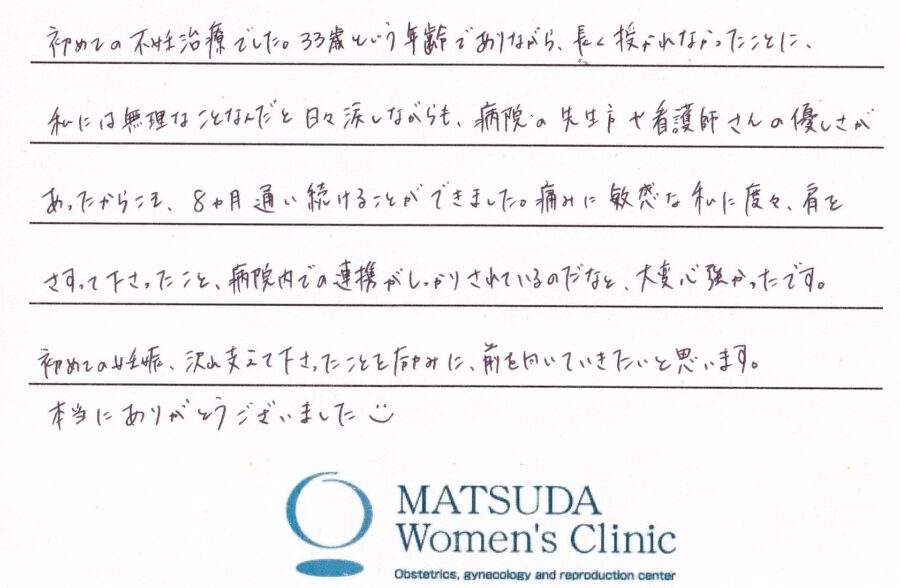 初めての不妊治療でした。33歳という年齢でありながら、長く授かれなかったことに、
私には無理なことなんだと日々涙しながらも、病院の先生方や看護師さんの優しさが
あったからこそ、8ヵ月通い続けることができました。痛みに敏感な私に度々、肩を
さすって下さったこと、病院内での連携がしっかりされているのだなと、大変心強かったです。
初めての妊娠、沢山支えて下さったことを励みに、前を向いていきたいと思います。
本当にありがとうございました
MATSUDA
Women's Clinic
Obstetrics, gynecology and reproduction center